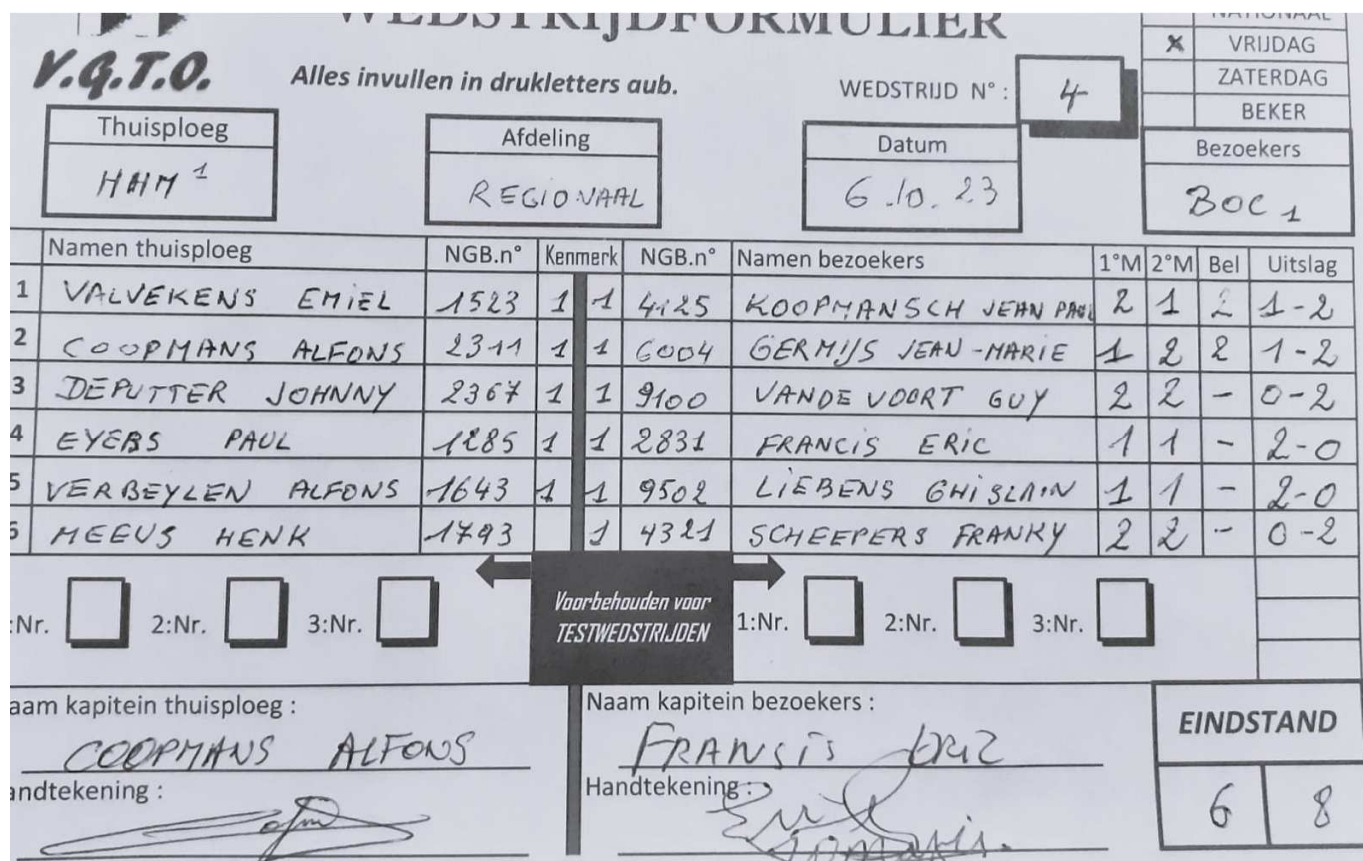 WEDSTRIJDFORMULIER
NATIONAAL
X VRIJDAG
ZATERDAG
BEKER
V.G.T.O.
Alles invullen in drukletters aub.
WEDSTRIJD N° : 4
Thuisploeg
HHM 1
Afdeling
REGIONAAL
Datum
6.10.23
Bezoekers
BOC 1
Namen thuisploeg NGB.n° Kenmerk NGB.n° Namen bezoekers 1°M 2°M Bel Uitslag
1 VALVEKENS EMIEL 1523 1 1 4125 KOOPMANSCH JEAN PAUL 2 1 2 1-2
2 COOPMANS ALFONS 2311 1 1 6004 GERMIJS JEAN-MARIE 1 2 2 1-2
3 DEPUTTER JOHNNY 2367 1 1 9100 VANDE VOORT GUY 2 2 - 0-2
4 EYERS PAUL 1285 1 1 2831 FRANCIS ERIC 1 1 - 2-0
5 VERBEYLEN ALFONS 1643 1 1 9502 LIEBENS GHISLAIN 1 1 - 2-0
MEEUS HENK 1793 1 4321 SCHEEPERS FRANKY 2 2 - 0-2
:Nr. 2:Nr. 3:Nr. Voorbehouden voor 1:Nr. 2:Nr. 3:Nr.
TESTWEDSTRIJDEN
aam kapitein thuisploeg : Naam kapitein bezoekers :
COOPMANS ALFONS FRANCIS
andtekening : Handtekening :
EINDSTAND
6 8